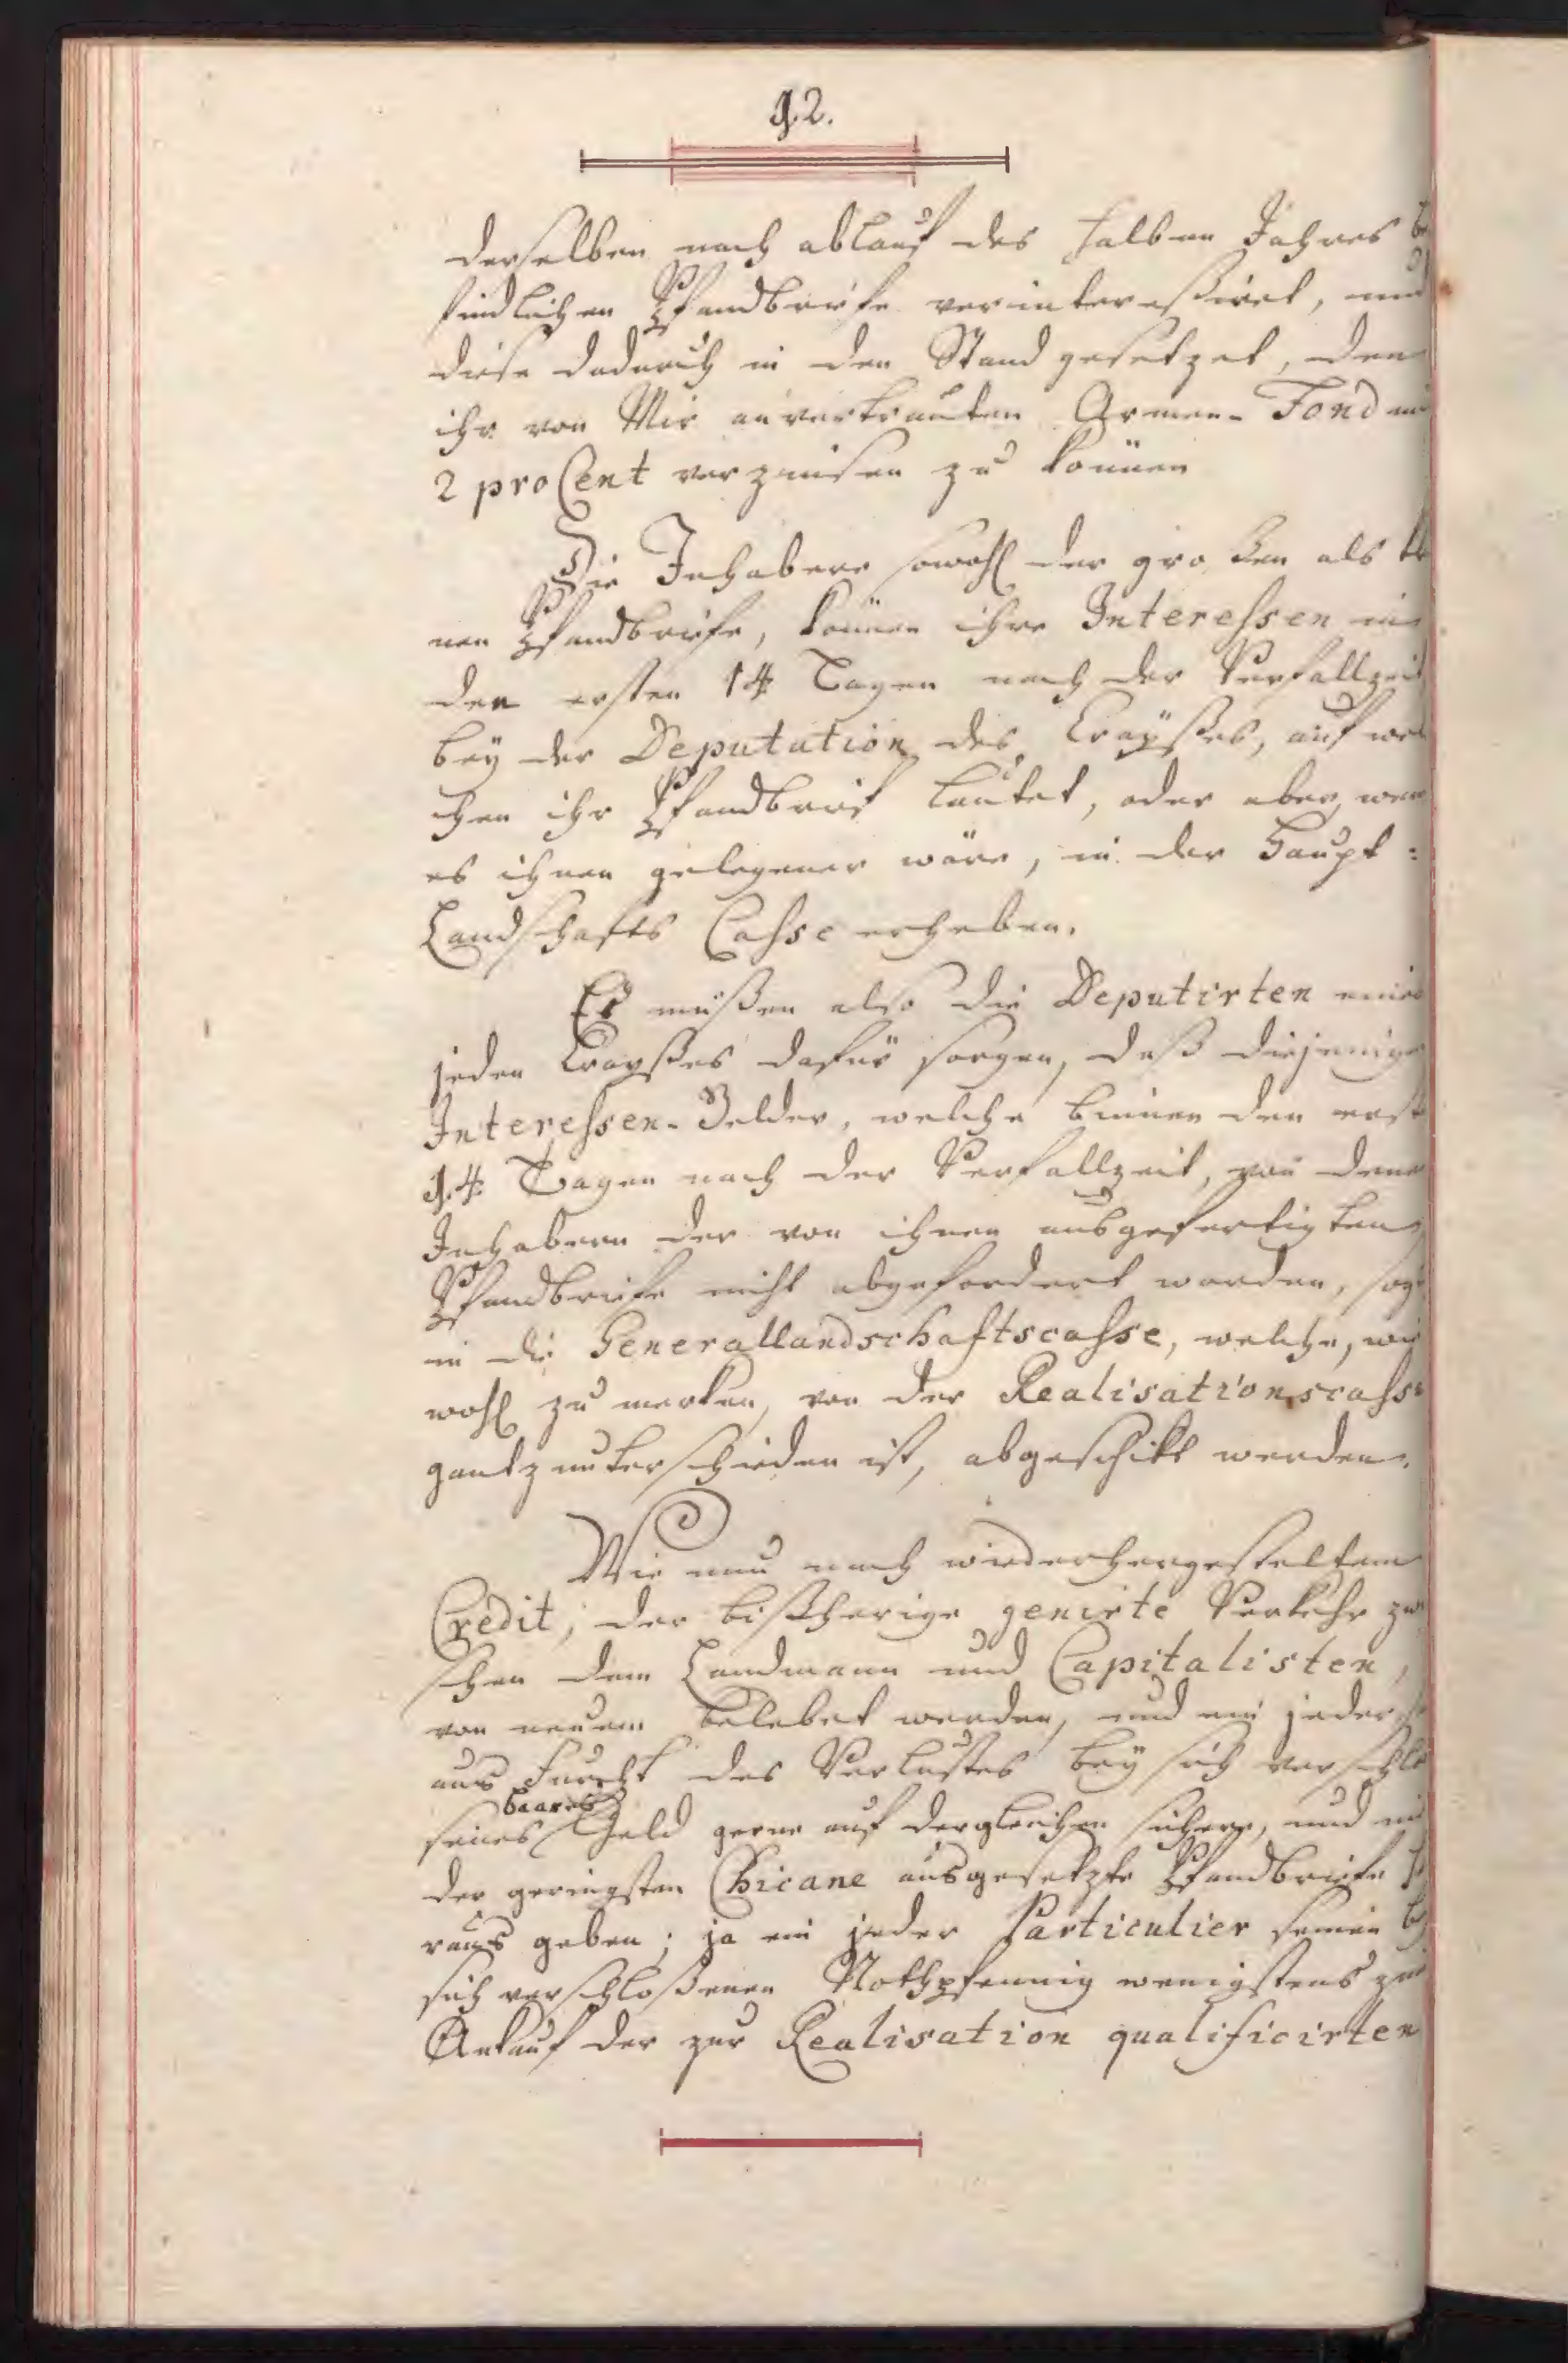 12.
derselben nach ablauf des halben Jahres be
findlichen Pfandbriefe verintereßiret, und
diese dadurch in den Stand gesetzet, den
ihr von Mir anvertrauten Armen-Fond mi
2 pro Cent verzinsen zu können
Die Inhabere sowohl der großen als kle
nen Pfandbriefe, können ihre Interessen in
den ersten 14 Tagen nach der Verfallzeit
bey der Deputation des Crayßes, auf wel
chen ihr Pfandbrief lautet, oder aber, wen
es ihnen gelegener wäre, in der Haupt:
Landschafts Casse erheben.
Es müßen also die Deputirten eines
jeden Crayßes dafür sorgen, daß diejenige
Interessen-Gelder, welche binnen den erst
14 Tagen nach der Verfallzeit, von denen
Inhabern der von ihnen ausgefertigten
Pfandbriefe nicht abgefordert worden, sog
in die Generallandschaftscasse, welche, wie
wohl zu merken, von der Realisationscasse
gantz unterschieden ist, abgeschikt werden.
Wie nun nach wiederhergesteltem
Credit, der bißherige genirte Verkehr zwi
schen dem Landmann und Capitalisten,
von neuem belebet werden, und ein jeder
aus Furcht des Verlustes bey sich verschlo
senes baares Geld gerne auf dergleichen sichere, und ni
der geringsten Chicane ausgesetzte Pfandbriefe he
raus geben; ja ein jeder Particulier seinen bey
sich verschloßenen Nothpfennig wenigstens zum
Ankauf der zur Realisation qualificirten